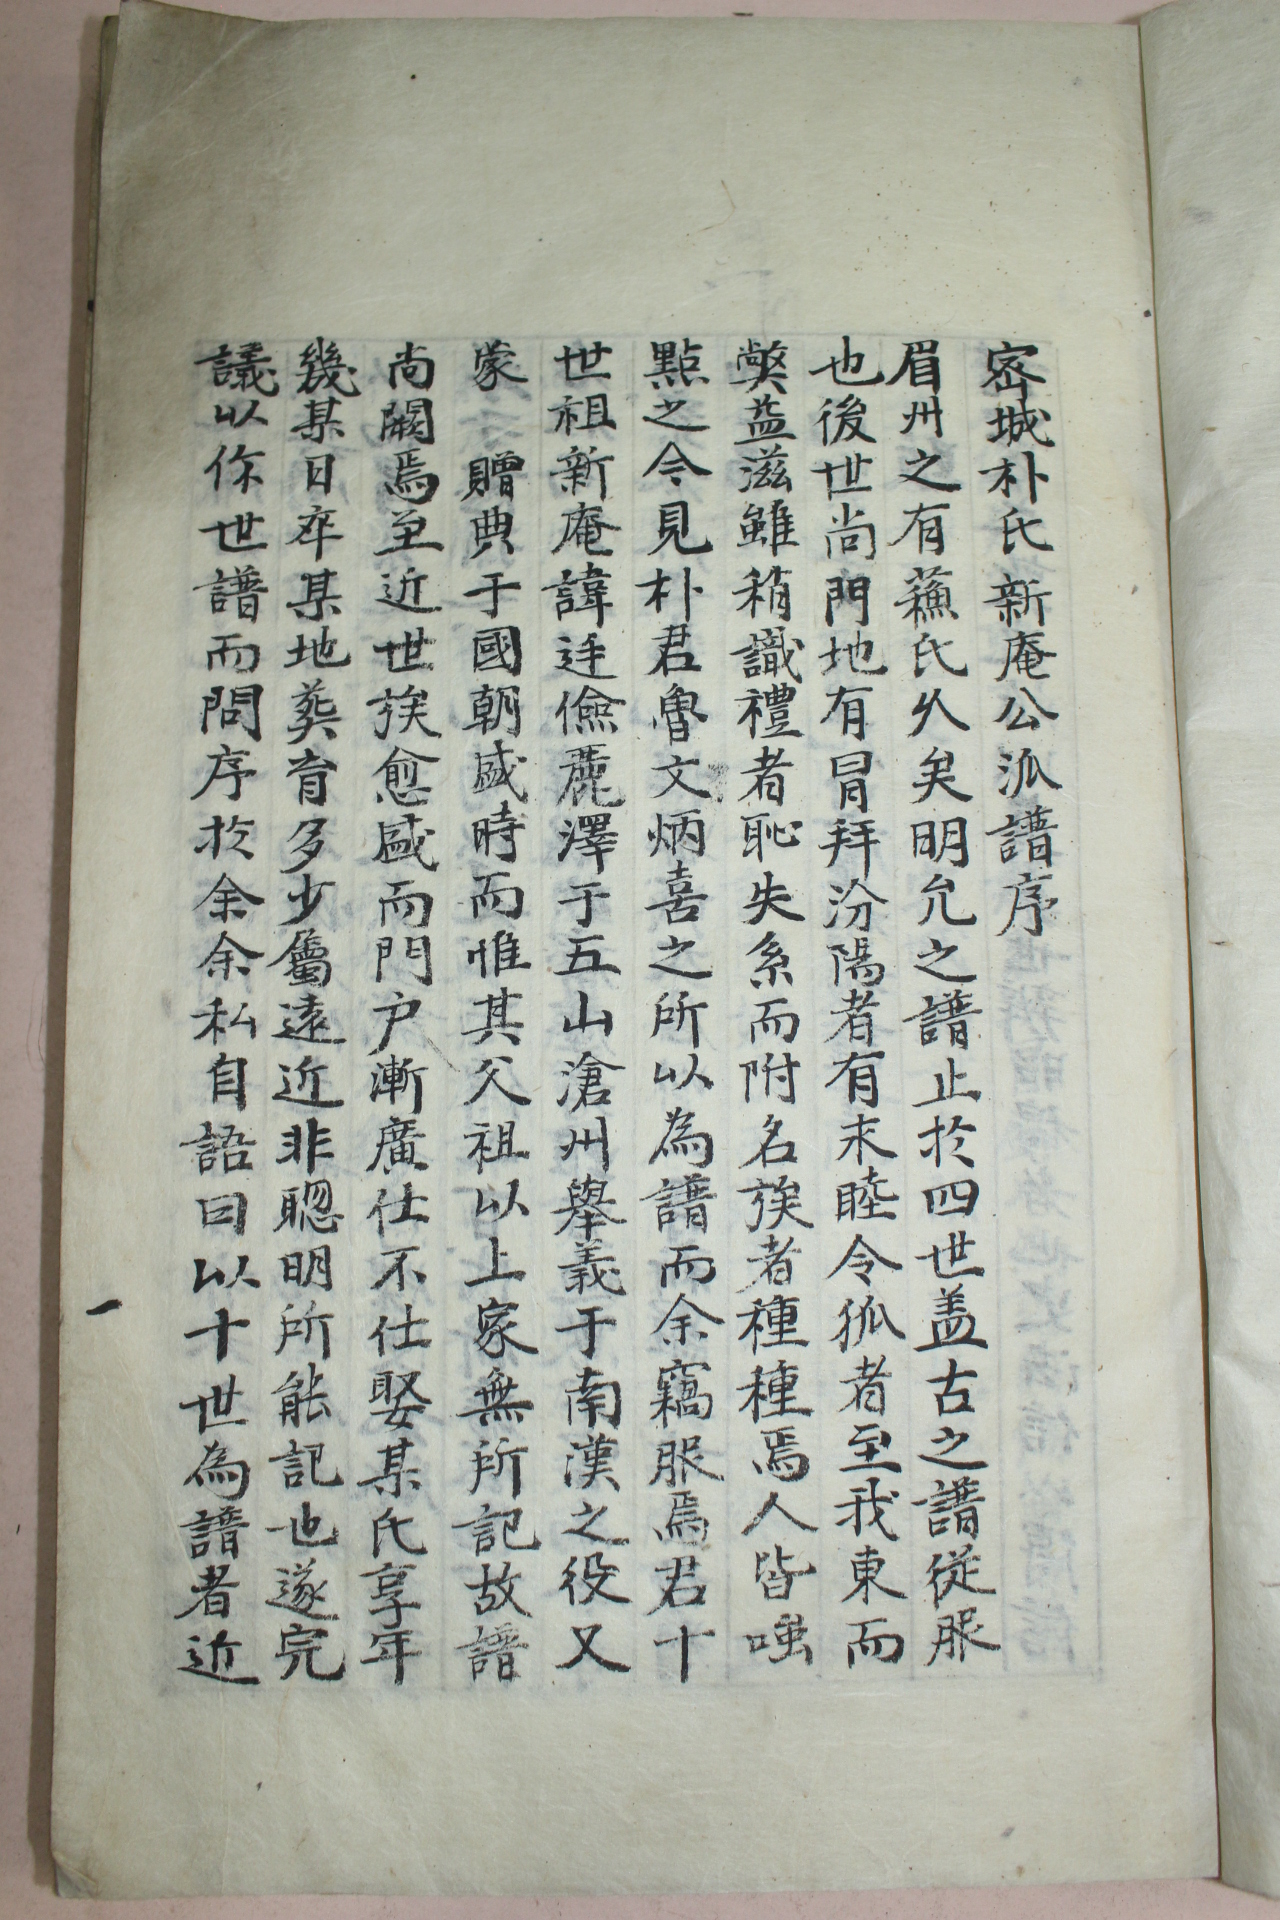 密城朴氏新庵公派譜序
眉州之有蘓氏久矣明允之譜止於四世盖古之譜從服
也後世尚門地有冒拜汾陽者有求睦令狐者至我東而
獘益滋雖稍識禮者恥失系而附名族者種種焉人皆嗤
點之今見朴君魯文炳喜之所以為譜而余竊服焉君十
世祖新庵諱廷儉麗澤于五山滄州舉義于南漢之役又
蒙 贈典于國朝盛時而惟其父祖以上家無所記故譜
尚闕焉至近世族愈盛而門户漸廣仕不仕娶某氏享年
幾某日卒某地葬育多少屬遠近非聰明所能記也遂完
議以作世譜而問序於余余私自語曰以十世為譜者近
一